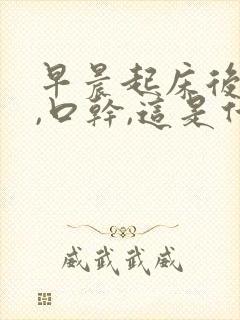 早晨起床後
,口幹,這是什
威武武威